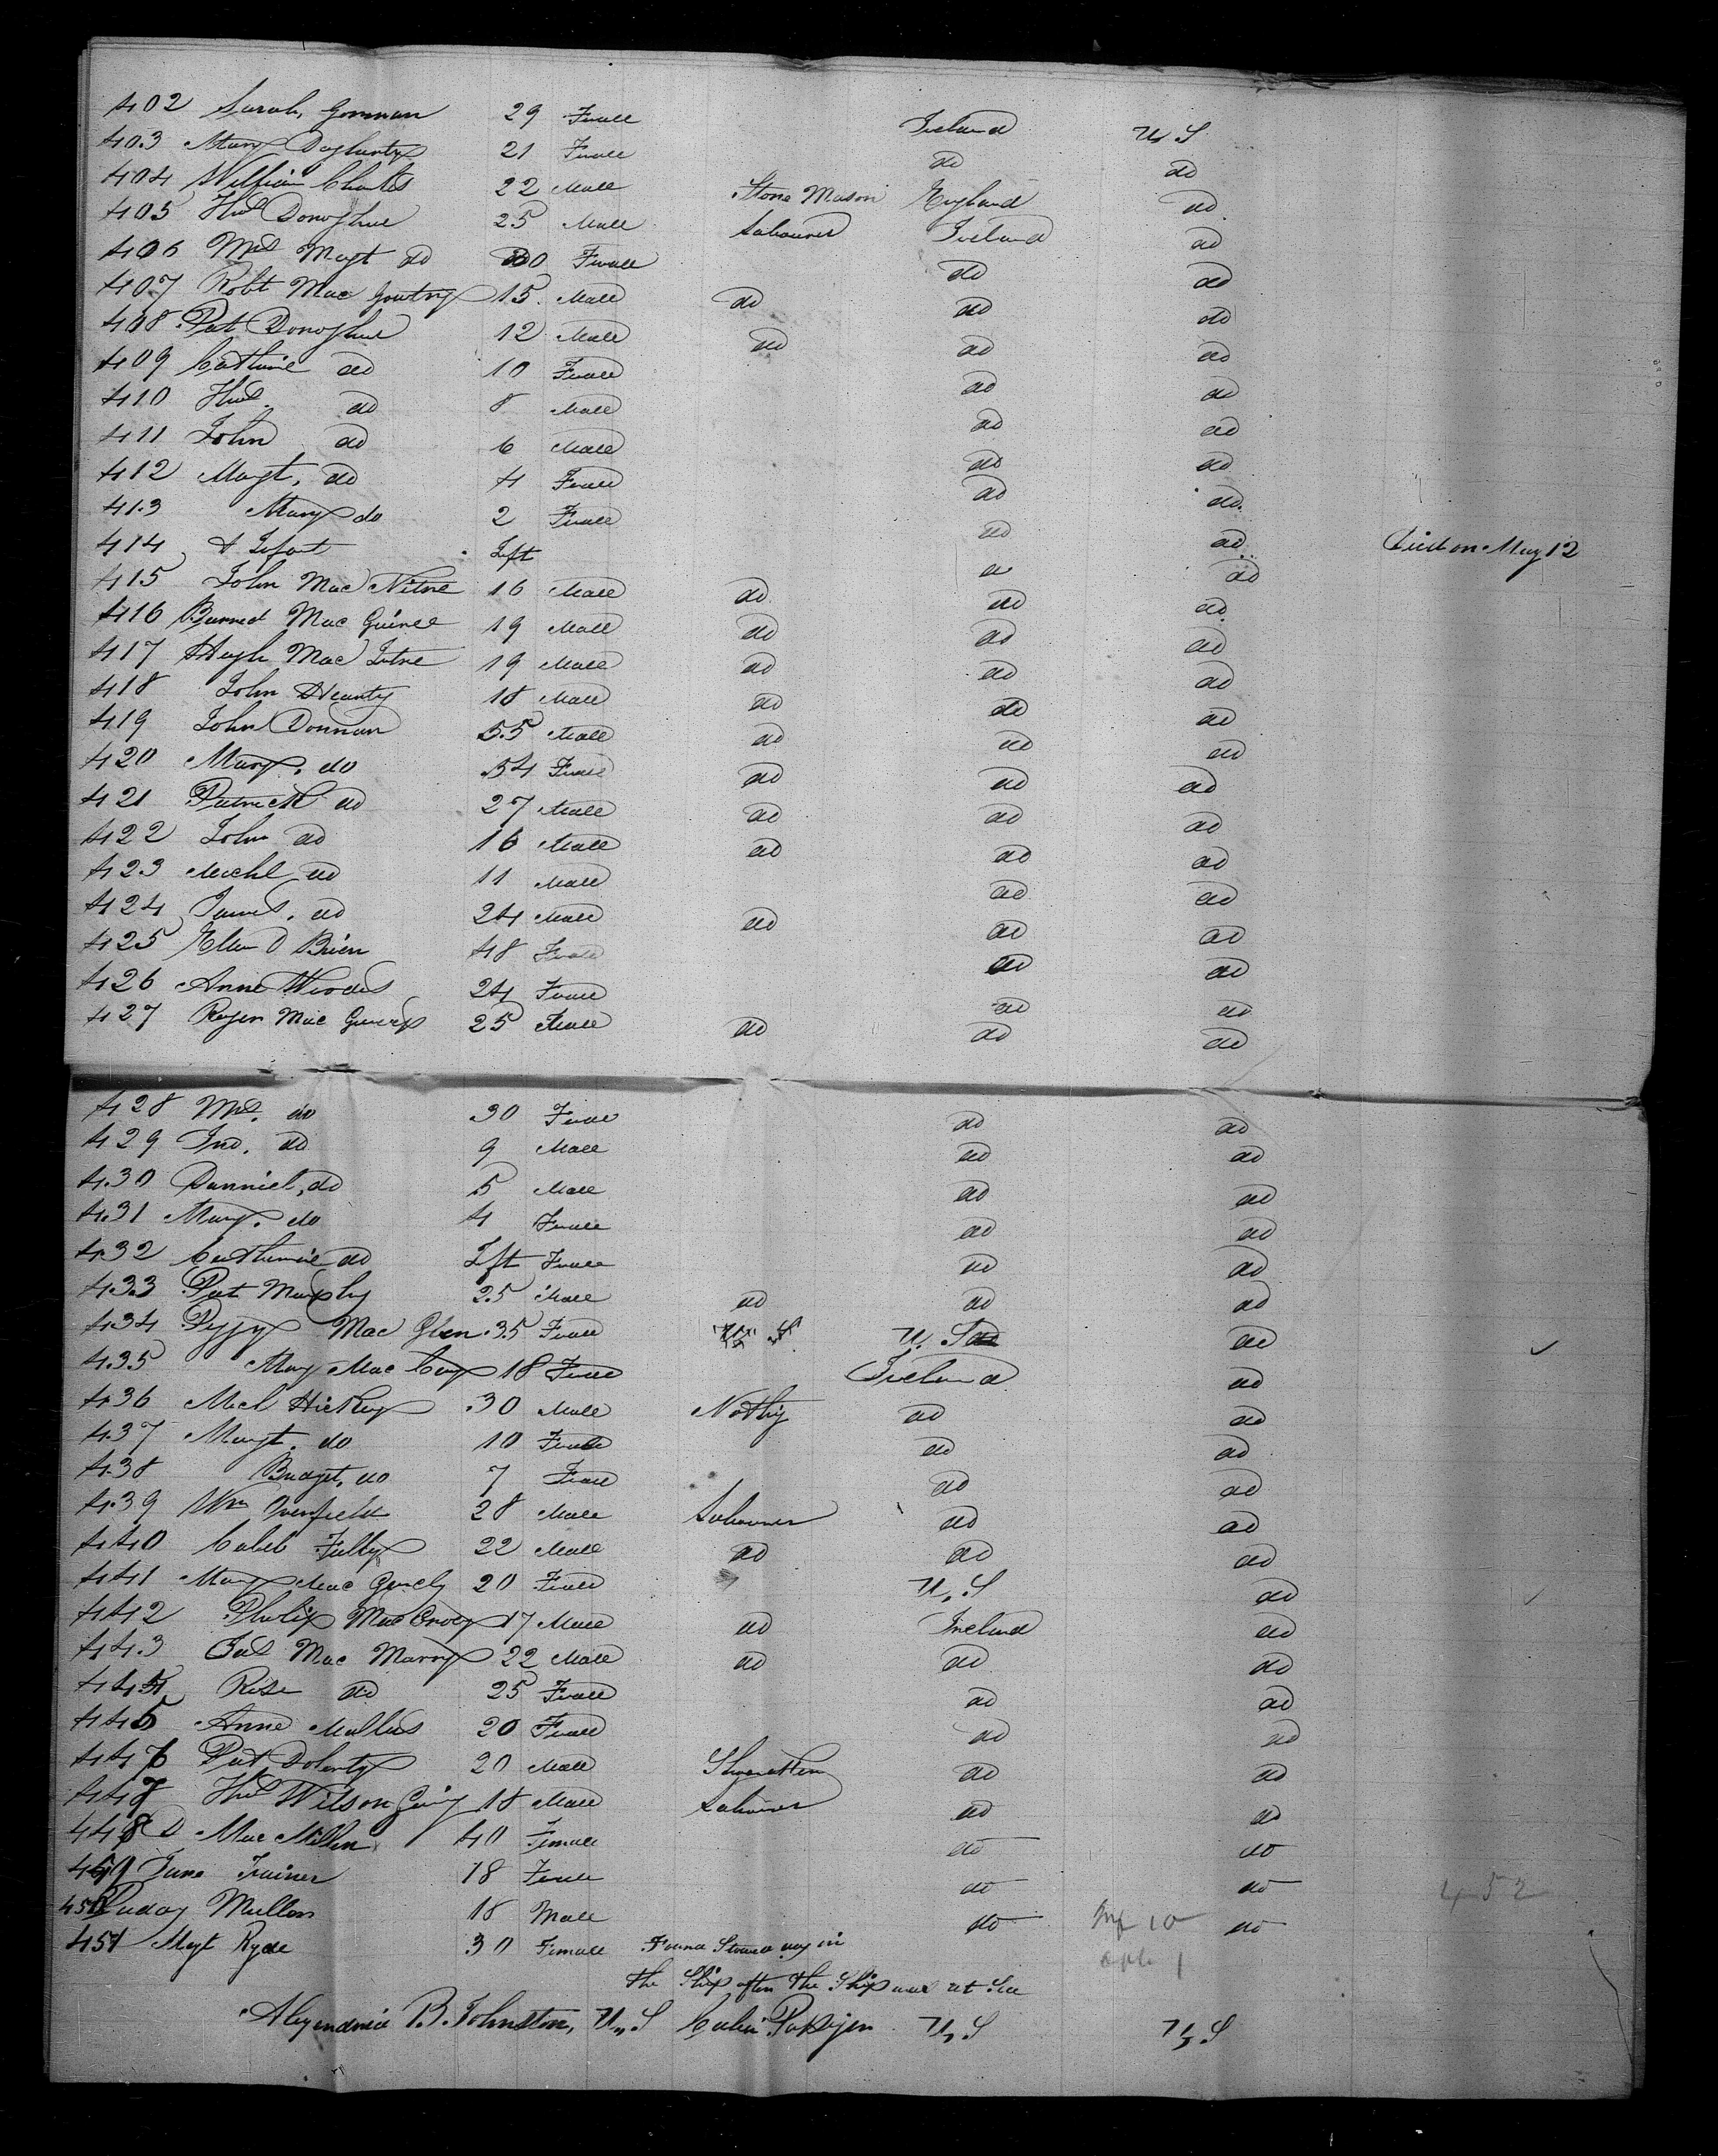 402 Sarah, Gorman 29 Female Ireland U S
403 Mary Dogharty 21 Female do do
404 William Charles 22 Male Stone Mason England do
405 Thos Donoghue 25 Male Labourer Ireland do
406 Mrs Magt do 30 Female do do
407 Robt Mac 15 Male do do do
408 Pat Donoghue 12 Male do do do
409 Catherine do 10 Female do do
410 Thos. do 8 Male do do
411 John do 6 Male do do
412 Margt. do 4 Female do do
413 Mary do 2 Female do do
414 & Infant Inft do do Died on May 12
415 John Mac 16 Male do do do
416 Barned Mac Guiness 19 Male do do do
417 Hugh Mac 19 Male do do do
418 John Hearty 18 Male do do do
419 John Donnan 55 Male do do do
420 Mary. do 54 Female do do do
421 Patrick do 27 Male do do do
422 John do 16 Male do do do
423 Michl do 11 Male do do
424 James. do 24 Male do do do
425 Ellen O Brien 48 Female do do
426 Anne Woods 24 Female do do
427 Roger Mac 25 Male do do do
428 Mrs. do 30 Female do do
429 Jno. do 9 Male do do
430 Danniel, do 5 Male do do
431 Mary. do 4 Female do do
432 Catherine do Inft Female do do
433 Pat Murphy 25 Male do do do
434 Peggy Mac Glen 35 Female U. S do
435 Mary Mac 18 Female Ireland do
436 Mich Hickey 30 Male Nothing do do
437 Margt. do 10 Female do do
438 Bridget, do 7 Female do do
439 Wm 28 Male Labourer do do
440 Caleb Tully 22 Male do do do
441 Mary Mac 20 Female U. S do
442 Philip Mac 17 Male do Ireland do
443 Jas Mac Marry 22 Male do do do
444 Rose do 25 Female do do
445 Anne Mullus 20 Female do do
446 Pat Doherty 20 Male do do
447 Thos Wilson 18 Male Labourer do do
448 D Mac Millen 40 Female do do
449 Jane Trainer 18 Female do do
450 Mullen 18 Male do do
451 Magt Ryde 30 Female Found Stowed way in
the Ship after the Ship was at Sea
452
Inf 10
B. Johnston, U. S Cabin U. S U. S